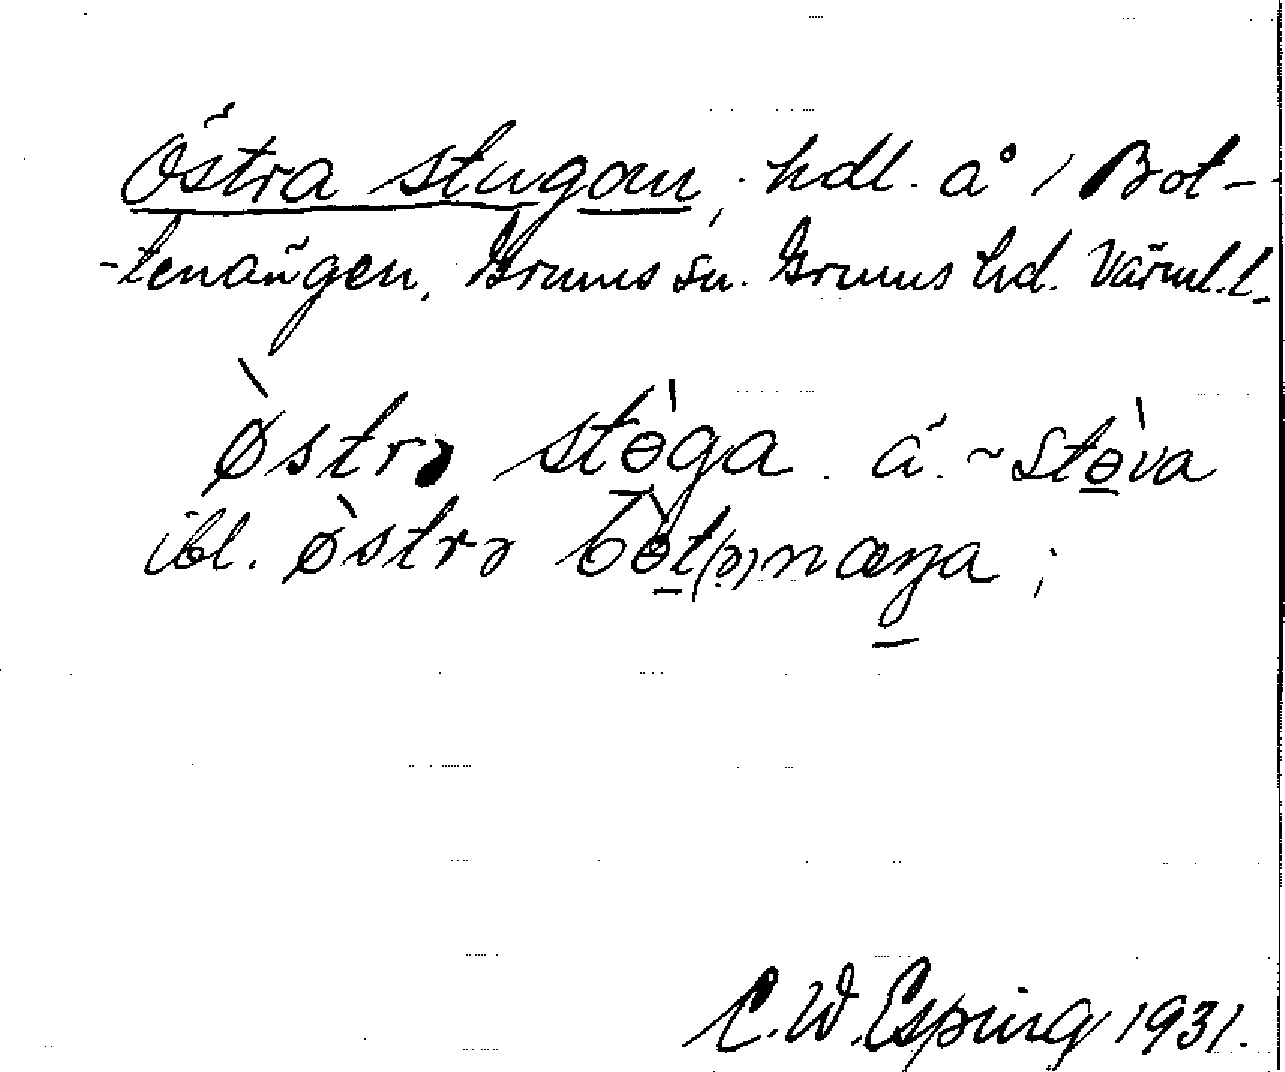 Östra stugan, hdl. å 1 Bot-
-tenängen, Grums sn. Grums hd. Värml. l.
ø̀strə stɵ̀ga. á. ~ stɵ̀va
ibl. ø̀strə bɵ̀t(ə)næŋa;
C. W. Esping 1931.